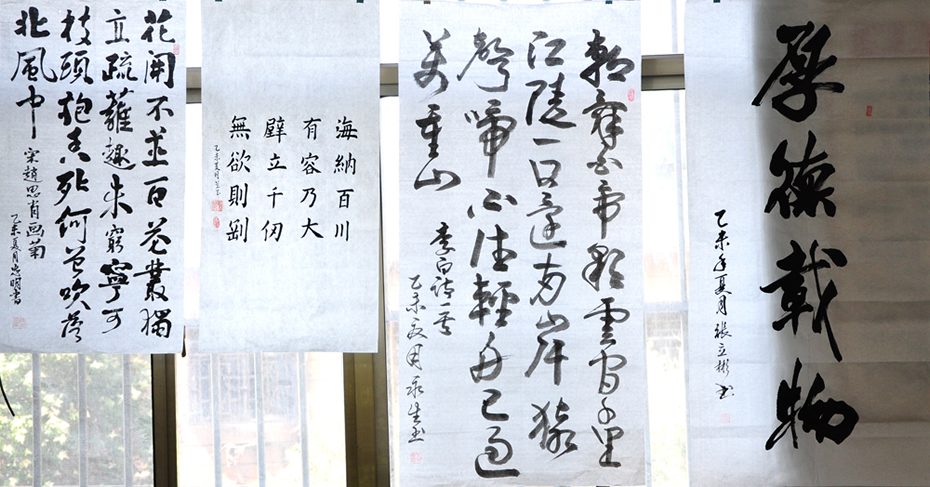 厚德載物
乙未年夏月張立彬书
朝辞白帝彩雲间千里
江陵一日還两岸猿
聲啼不住輕舟已過
萬重山
李白诗一首
乙未夏月永生书
海納百川
有容乃大
壁立千仞
無欲則剛
乙未夏月
花開不並百花叢獨
立疏蘺趣未窮寧可
枝頭抱香死何曾吹落
北風中
宋趙思肖画菊
乙未夏月忠明書